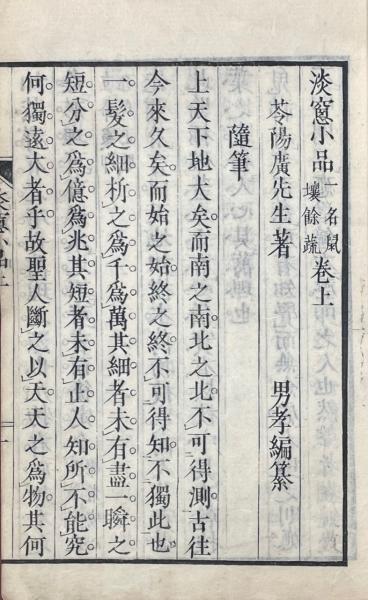 淡窓小品一名鼠壤餘蔬卷上
苓陽廣先生著 男孝編纂
隨筆
上天下地大矣而南之南北之北不可得測古往
今來久矣而始之始終之終不可得知不獨此也
一髮之細析之爲千爲萬其細者未有盡一瞬之
短分之爲億爲兆其短者未有止人知所不能究
何獨遠大者乎故聖人斷之以天天之爲物其何